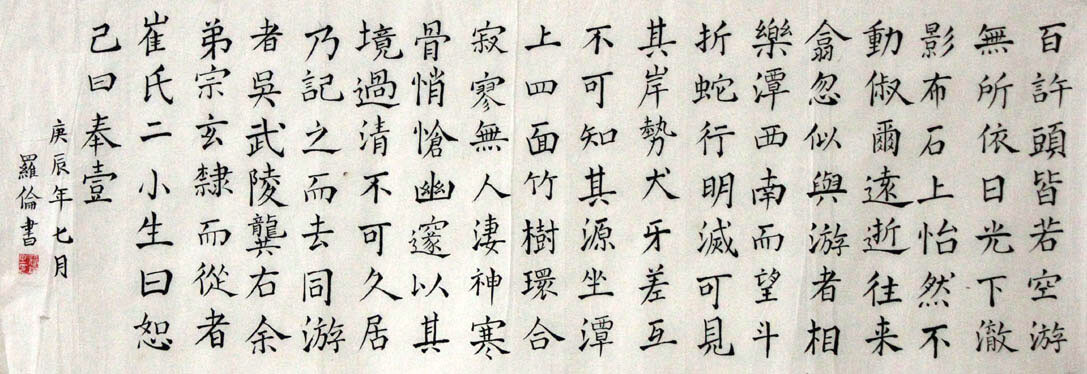 百許頭皆若空游
無所依日光下澈
影布石上怡然不
動俶爾遠逝往来
翕忽似與游者相
樂潭西南而望斗
折蛇行明滅可見
其岸勢犬牙差互
不可知其源坐潭
上四面竹樹環合
寂寥無人淒神寒
骨悄愴幽邃以其
境過清不可久居
乃記之而去同游
者吳武陵龔右余
弟宗玄隸而從者
崔氏二小生曰恕
己曰奉壹
庚辰年七月
羅倫書